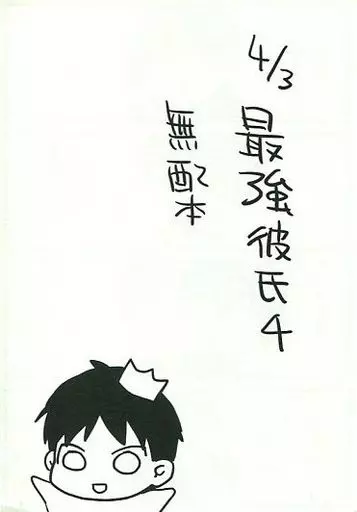 4/3
最強彼氏4
無配本